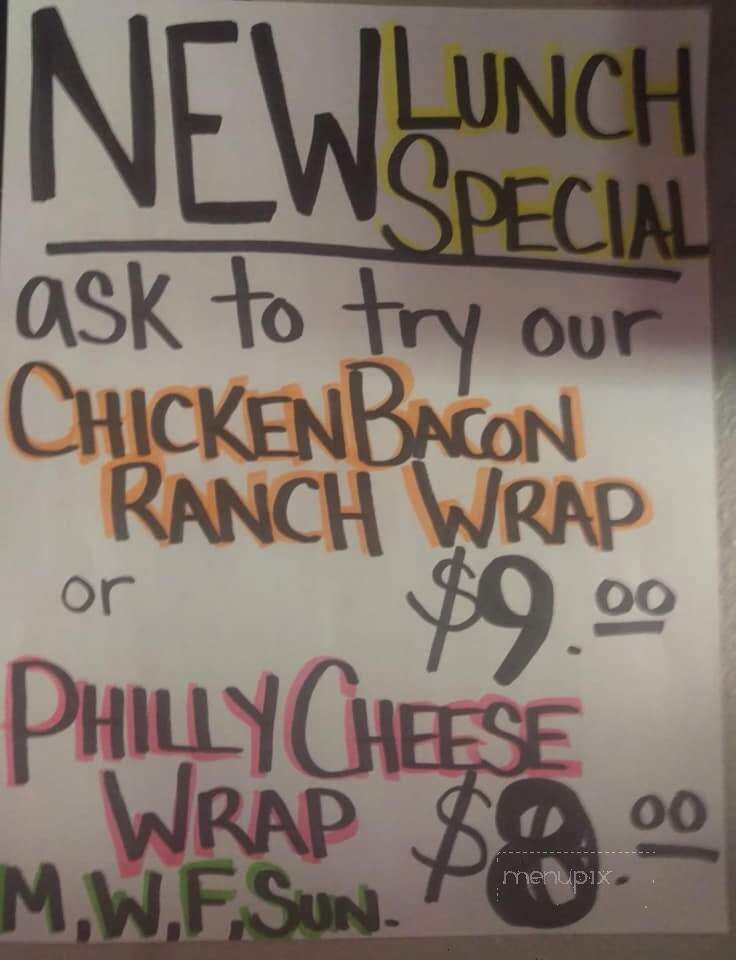 NEW LUNCH
SPECIAL
ask to try our
CHICKEN BACON
RANCH WRAP
or $9.00
PHILLY CHEESE
WRAP $8.00
menupix
M,W,F,SUN.